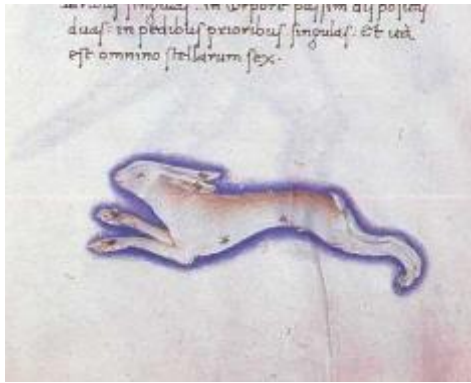 singulas. in corpore passim dispositas
duas: in pedibus prioribus singulas. Et ita
est omnino stellarum sex.